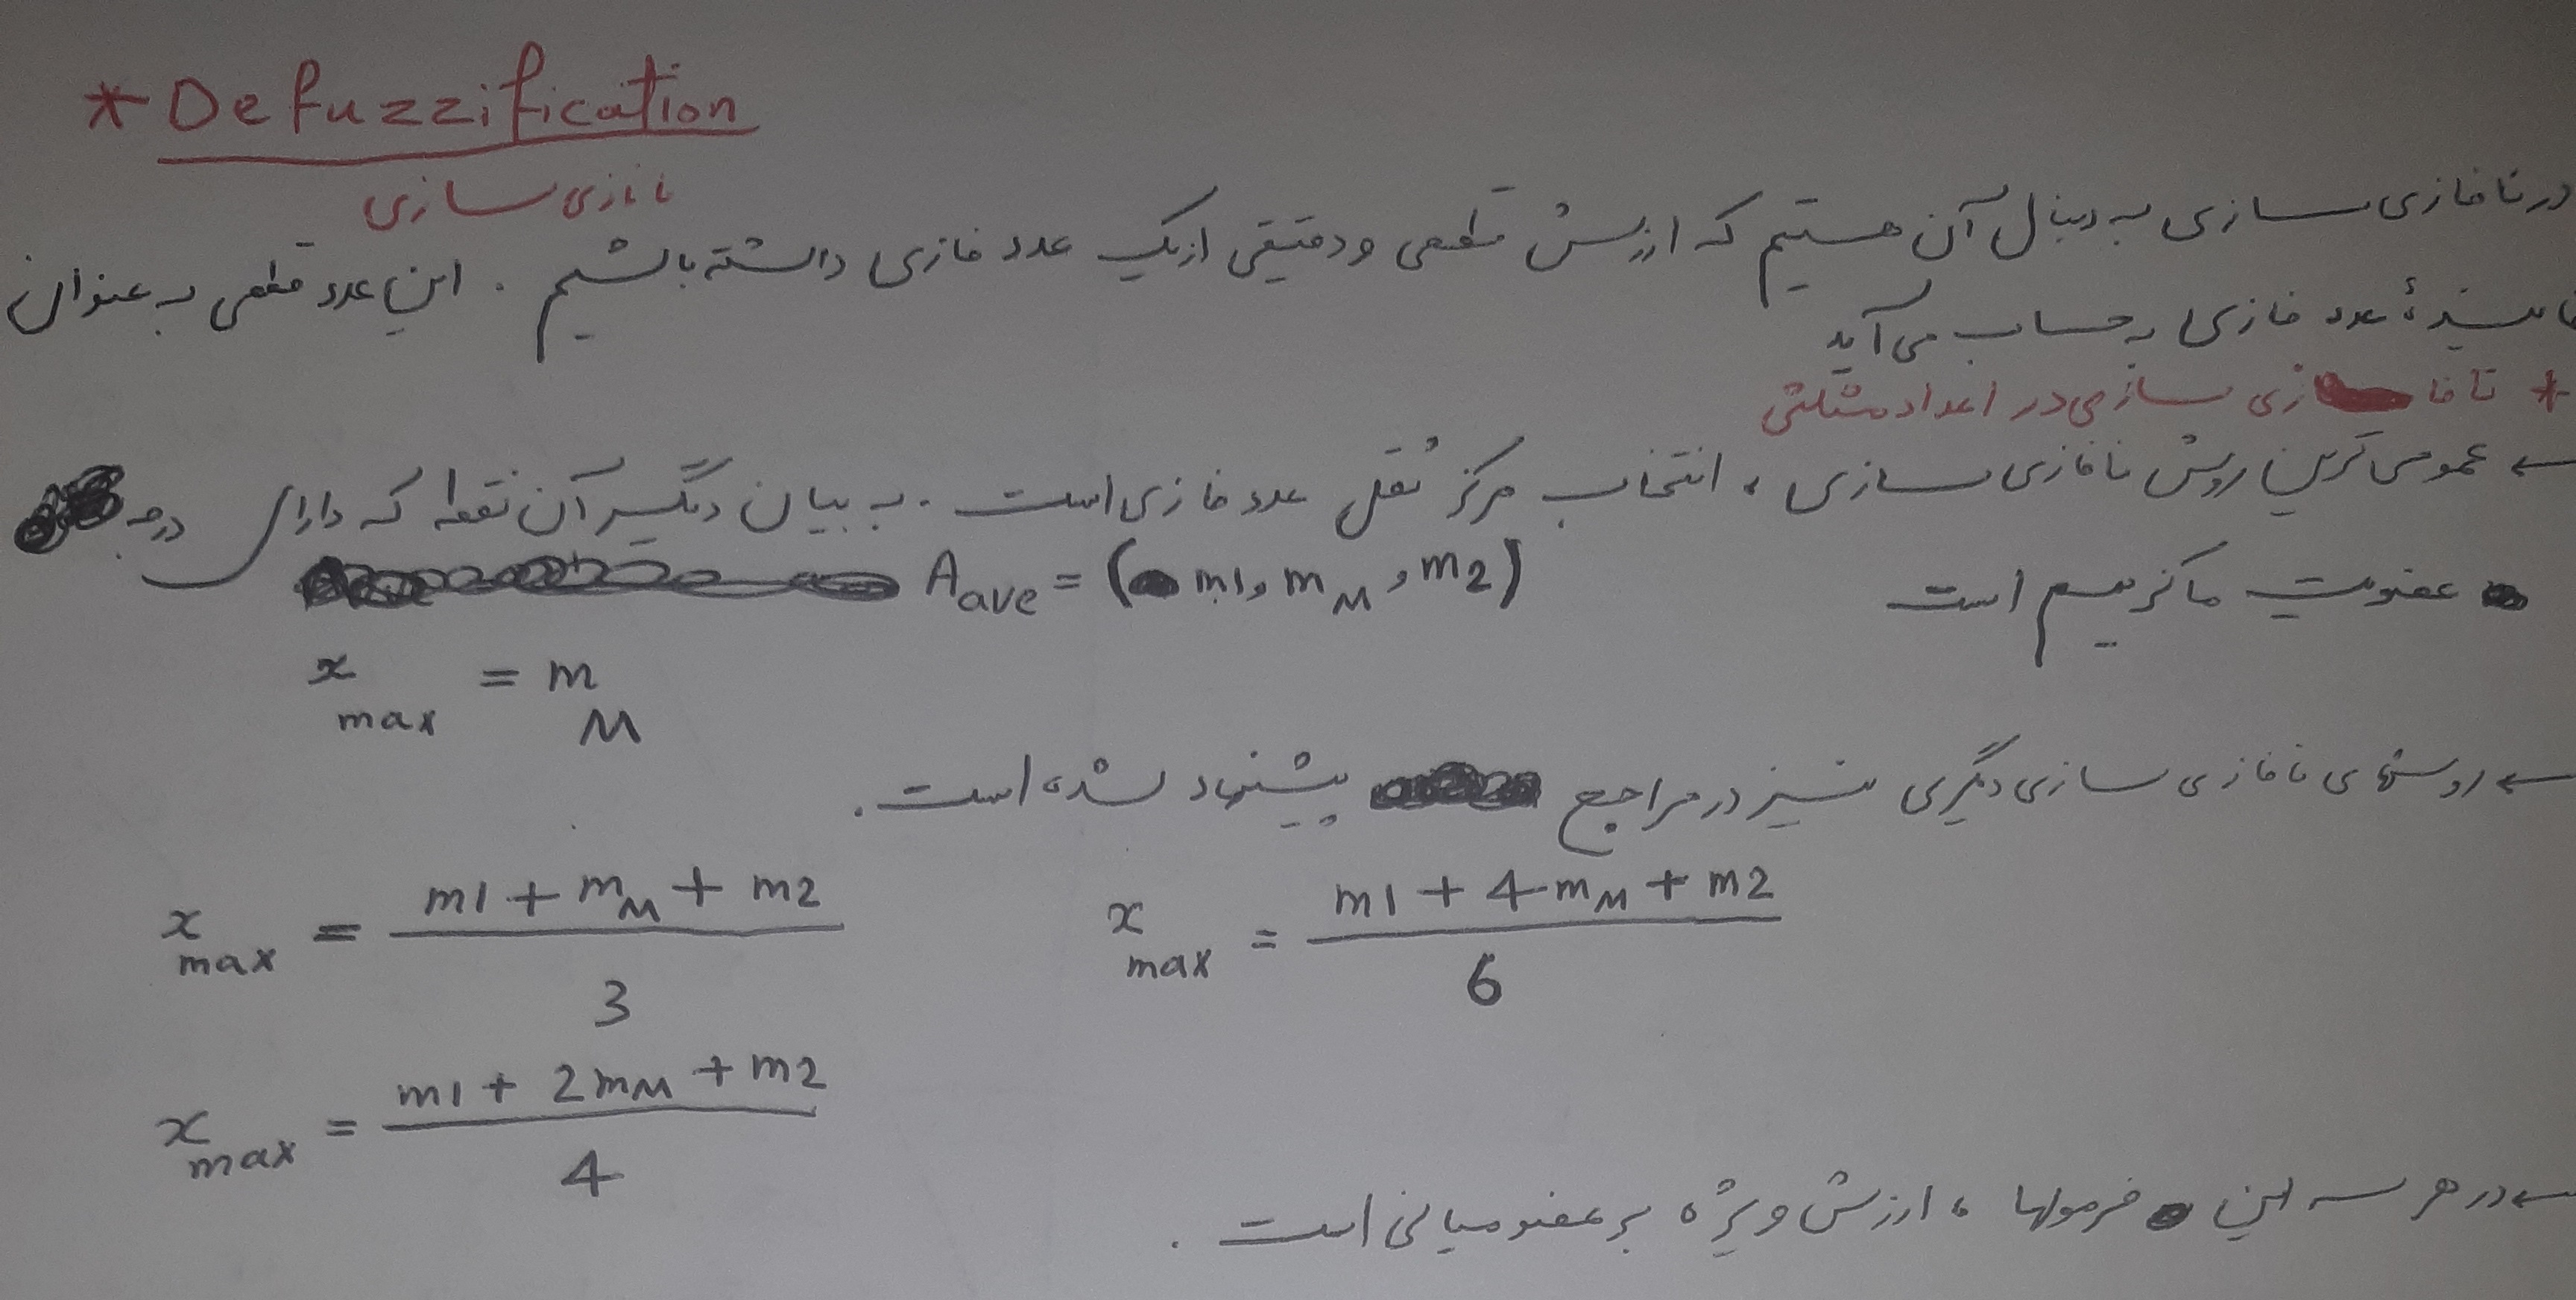 * Defuzzification
نافازی سازی
در نافازی سازی به دنبال آن هستیم که ارزش قطعی و دقیقی از یک عدد فازی داشته باشیم . این عدد قطعی به عنوان
نماینده عدد فازی به حساب می آید
* نافازی سازی در اعداد مثلثی
← عمومی ترین روش نافازی سازی ، انتخاب مرکز ثقل عدد فازی است . به بیان دیگر آن نقطه که دارای درجه
عضویت ماکزیمم است A_ave = (m1, m_M, m2)
x_max = m_M
← روشهای نافازی سازی دیگری نیز در مراجع پیشنهاد شده است .
x_max = (m1 + m_M + m2) / 3    x_max = (m1 + 4m_M + m2) / 6
x_max = (m1 + 2m_M + m2) / 4
← در هر سه این فرمولها ، ارزش ویژه بر عضو میانی است .